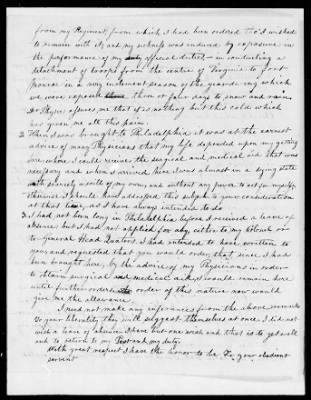 from my Regiment, from which I had been ordered tho' I wished
to remain with it, and my sickness was induced by exposure in
the performance of my official duties — in conducting a
detachment of troops from the centre of Virginia to Fort
Monroe in a very inclement season of the year during which
we were exposed three or four days to snow and rain.
Dr Physic assures me that it is nothing but this cold which
has given me all this pain.
2 When I was brought to Philadelphia it was at the earnest
advice of many Physicians that my life depended upon my getting
one where I could receive the surgical and medical aid that was
necessary and when I arrived here I was almost in a dying state
with scarcely a will of my own, and without any power to act for myself,
otherwise I should have addressed this subject to your consideration
at this time, as I have always intended to do.
3 I had not been long in Philadelphia before I received a leave of
absence but I had not applied for any, either to my Colonel or
to General Head Quarters. I had intended to have written to
you and requested that you would order, that since I had
been brought here, by the advice of my Physicians in order
to obtain surgical and medical aid, I would remain here
until further orders. An order of this nature now would
give me the allowance.
I need not make any inferences from the above remarks
to your liberality they will suggest themselves at once. I did not
wish a leave of absence I have but one wish and that is to get well
and to return to my Post and my duty.
With great respect I have the honor to be Sir, your obedient
servent